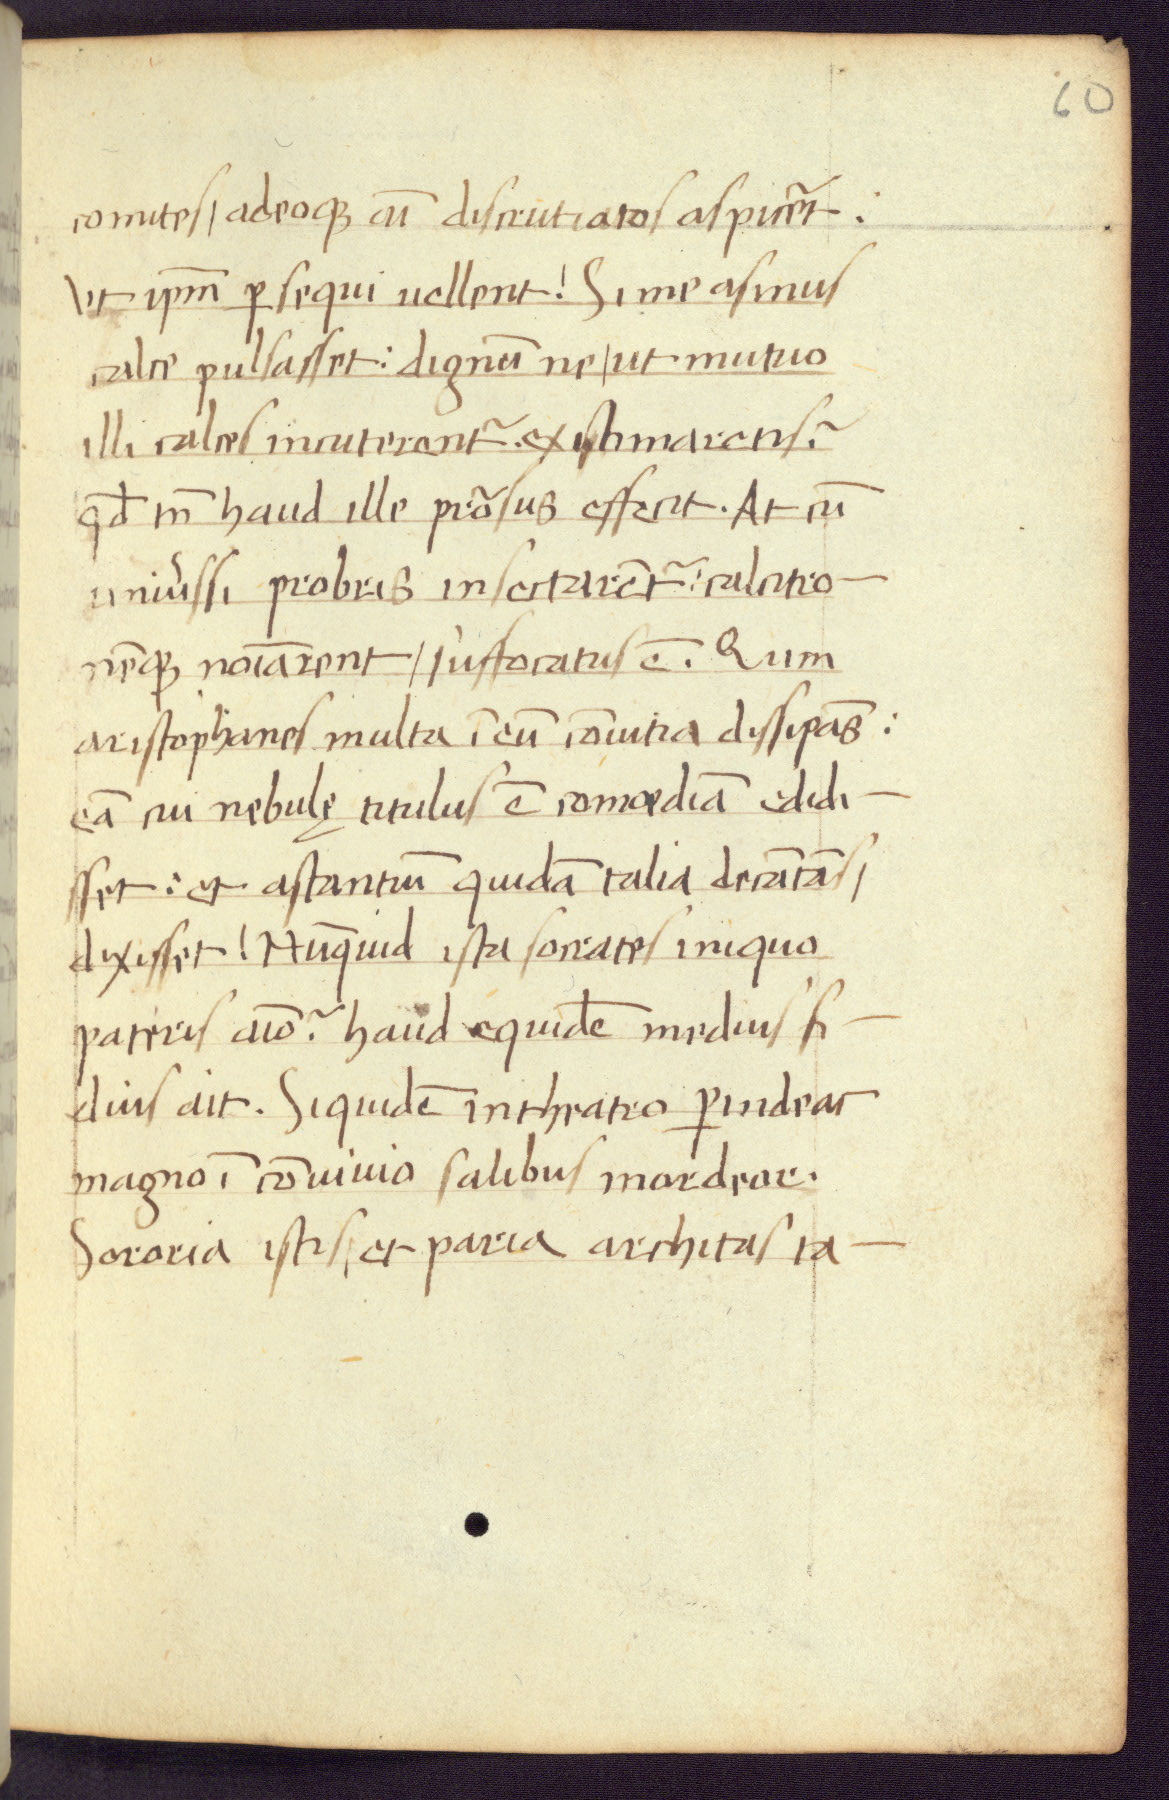 60
comites / adeoqꝫ ai᷑ discrutiatos aspicẽt :
Vt ip̄m ꝑsequi uellent ! Si me asinus
calce pulsasset : dignũ ne / ut mutuo
illi calces incuterent᷑ . existimaretis ?
qđ tñ haud ille prõsus effecit . At cũ
uniũssi probris insectarẽt᷑ : calcitro—
nẽqꝫ noĩarent / suffocatus ẽ . Qum
aristophanes multa ĩ eũ cõuitia dissipãs :
eã cui nebulę titulus ẽ comoediã edidi—
sset : et astantiũ quidã talia decãtãs /
dixisset ! Nũquid ista socrates iniquo
pateris aĩo ? haud equidẽ medius fi—
dius ait . Siquidẽ in theatro ꝑindeac
magno ĩ cõuiuio salibus mordeor .
Sororia istis , et paria architas ta—